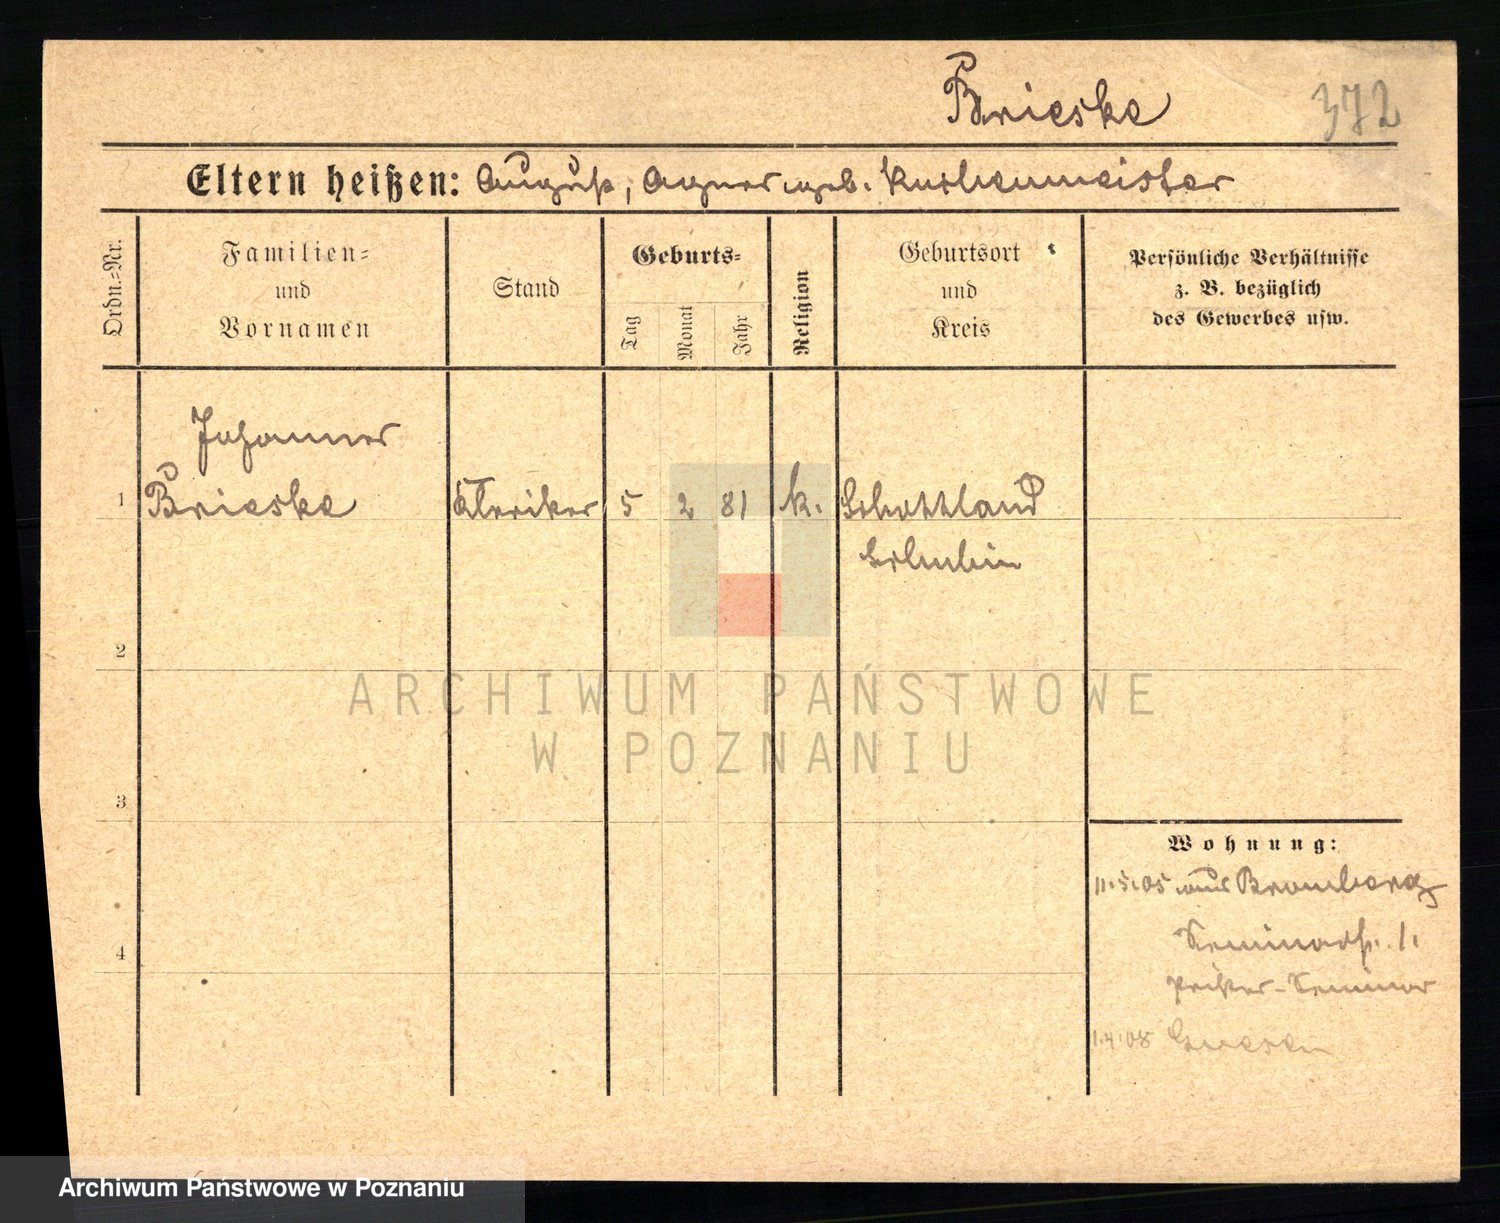 Brieske
372
Eltern heißen: August, Agnes geb. Kuchenmeister
Ordn.-Nr.
Familien-
und
Vornamen
Stand
Geburts-
Tag
Monat
Jahr
Religion
Geburtsort
und
Kreis
Persönliche Verhältnisse
z. B. bezüglich
des Gewerbes usw.
Johannes
1 Brieske Kleriker 5 2 81 k. Schottland
Schubin
2
ARCHIWUM PAŃSTWOWE
W POZNANIU
3
Wohnung:
11.5.05 aus Bromberg
Seminarstr. 1.
4
Priester-Seminar
1.4.08 Gnesen
Archiwum Państwowe w Poznaniu